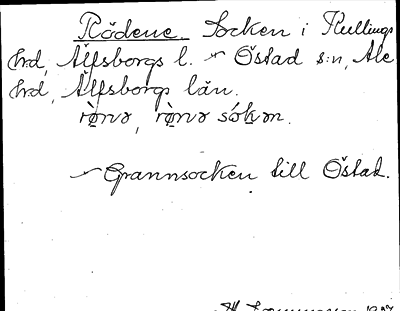 Rödene. Socken i Kullings
hrd, Älfsborgs l. ~ Östad s:n, Ale
hrd, Älfsborgs län.
rø̀nə, rø̀nə sókən.
~ Grannsocken till Östad.